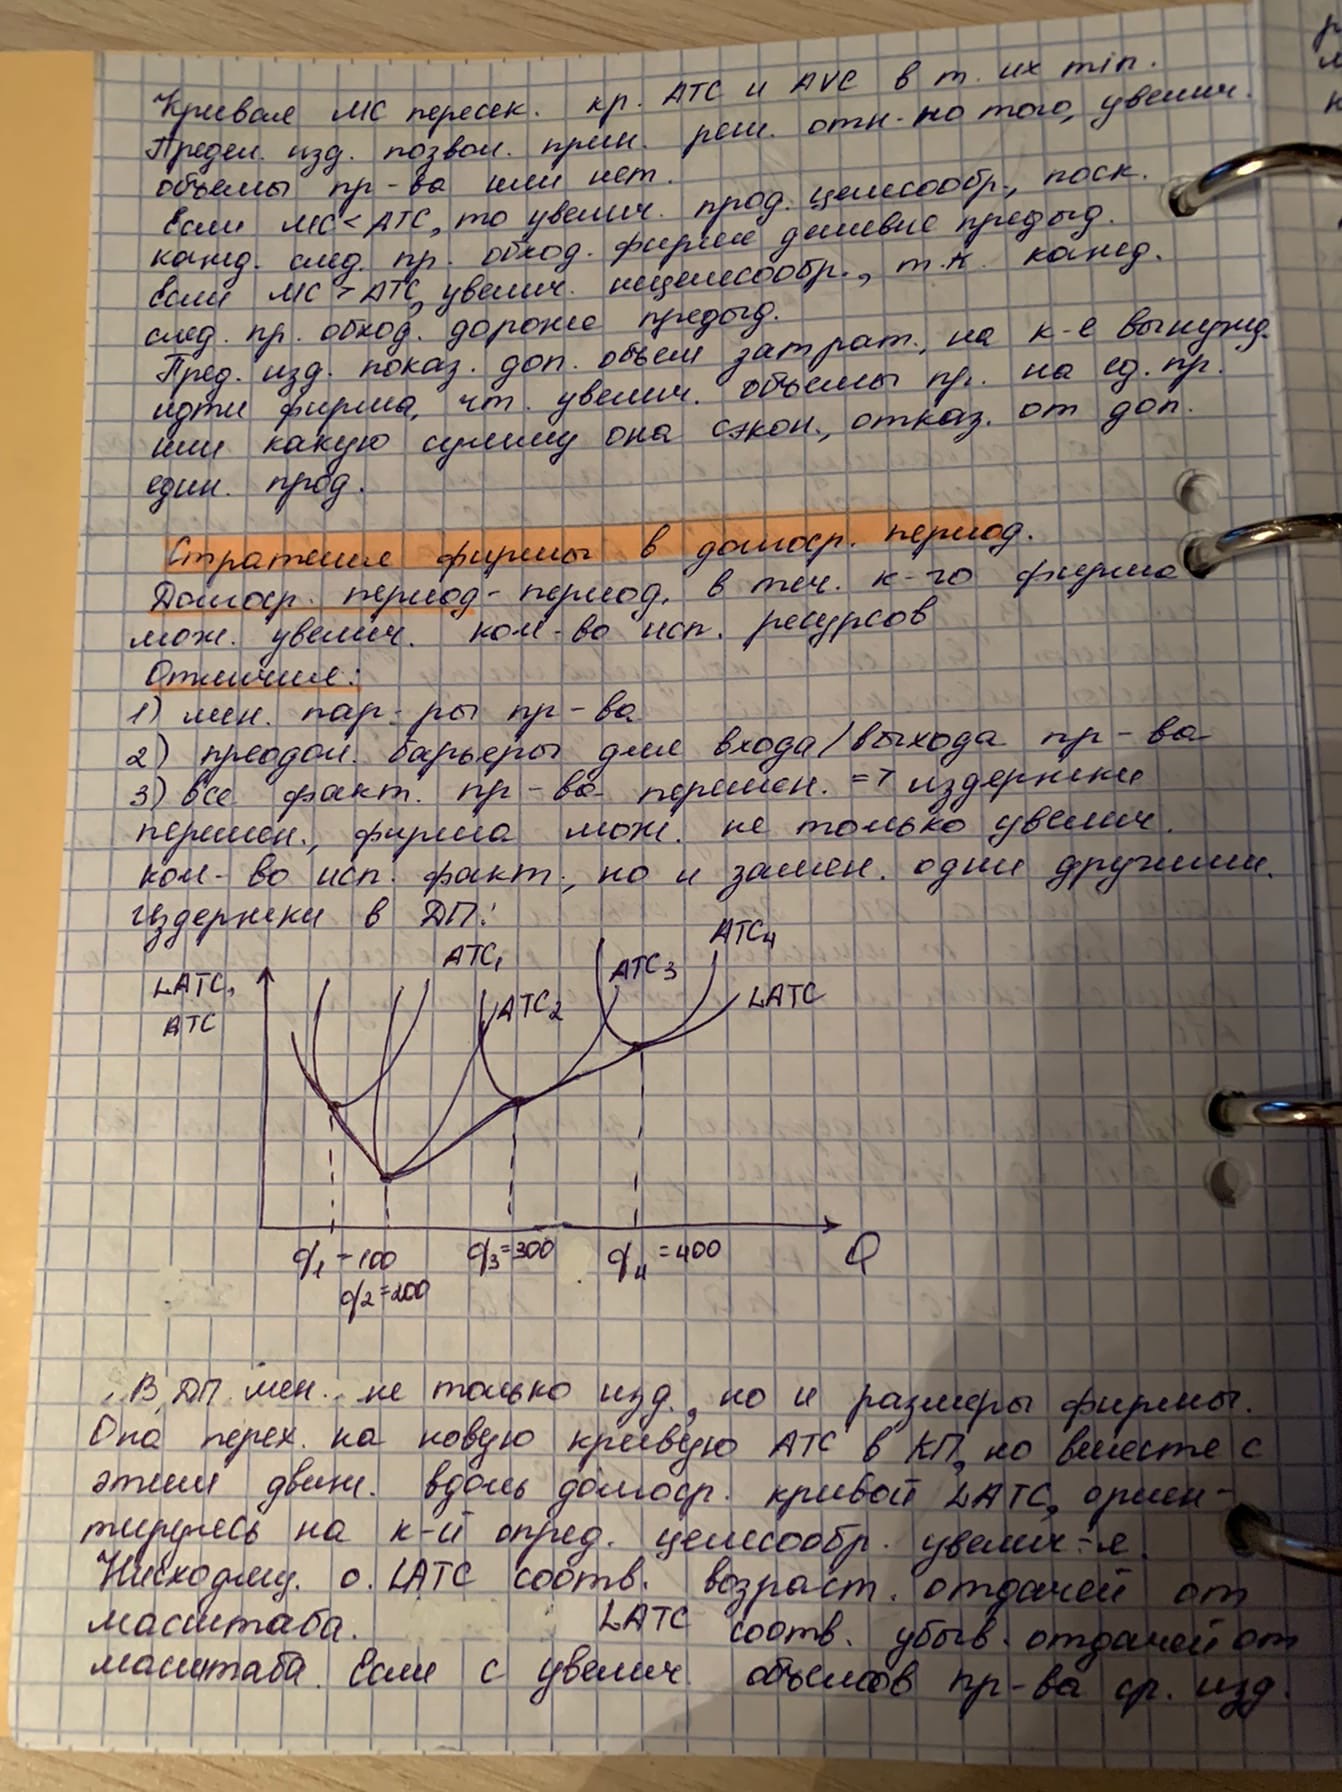 Кривая MC пересек. кр. ATC и AVC в т. их min.
Предел. изд. позвол. прин. реш. отн-но того, увелич.
объемы пр-ва или нет.
Если MC < ATC, то увелич. прод. целесообр., поск.
кажд. след. пр. обход. фирме дешевле предыд.
Если MC > ATC, увелич. нецелесообр., т.к. кажд.
след. пр. обход. дороже предыд.
Пред. изд. показ. доп. объем затрат., на к-е вынужд.
идти фирма, чт. увелич. объемы пр. на ед. пр.
или какую сумму она сэкон., отказ. от доп.
един. прод.
Стратегия фирмы в долгоср. период.
Долгоср. период - период, в теч. к-го фирма
мож. увелич. кол-во исп. ресурсов
Отличия:
1) мен. пар-ры пр-ва
2) преодол. барьеры для входа/выхода пр-ва
3) все факт. пр-ва перемен. => издержки
перемен., фирма мож. не только увелич.
кол-во исп. факт., но и замен. одни другими.
Издержки в ДП:
LATC,
ATC
ATC1
ATC2
ATC3
ATC4
LATC
q1 = 100
q2 = 200
q3 = 300
q4 = 400
Q
В ДП мен. не только изд., но и размеры фирмы.
Она перех. на новую кривую ATC в КП, но вместе с
этим движ. вдоль долгоср. кривой LATC, ориен-
тируясь на к-й опред. целесообр. увелич-я.
Нисходящ. о. LATC соотв. возраст. отдачей от
масштаба. LATC соотв. убыв. отдачей от
масштаба. Если с увелич. объемов пр-ва ср. изд.